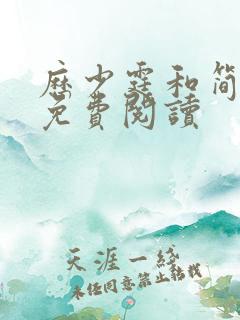 厤少霆和简
免費閱讀
天涯一线
未经同意禁止转载